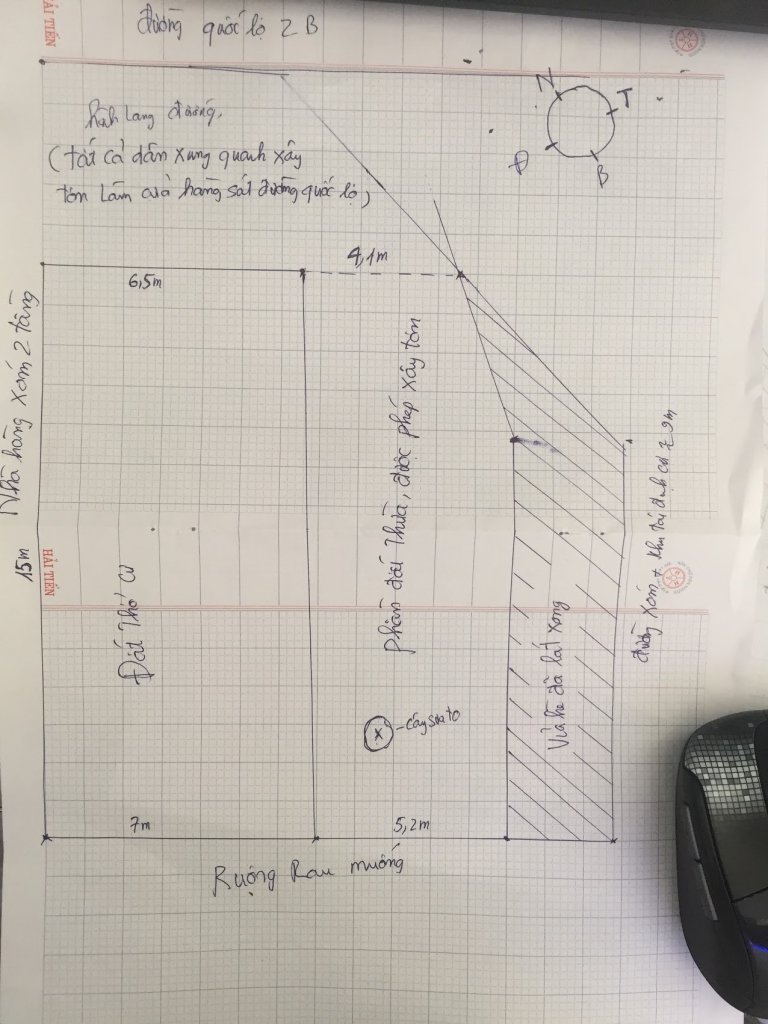 HẢI TIẾN
đường quốc lộ 2B
N
T
Đ
B
hành lang đường.
(tất cả dân xung quanh xây
tôn làm cửa hàng sát đường quốc lộ)
4,1m
6,5m
Nhà hàng xóm 2 tầng
15m
HẢI TIẾN
Đất thổ cư
phần đất thừa, được phép xây tôn
cây sữa to
Vỉa hè đã lát xong
đường xóm + khu tái định cư 7-9m
7m
5,2m
Ruộng Rau muống